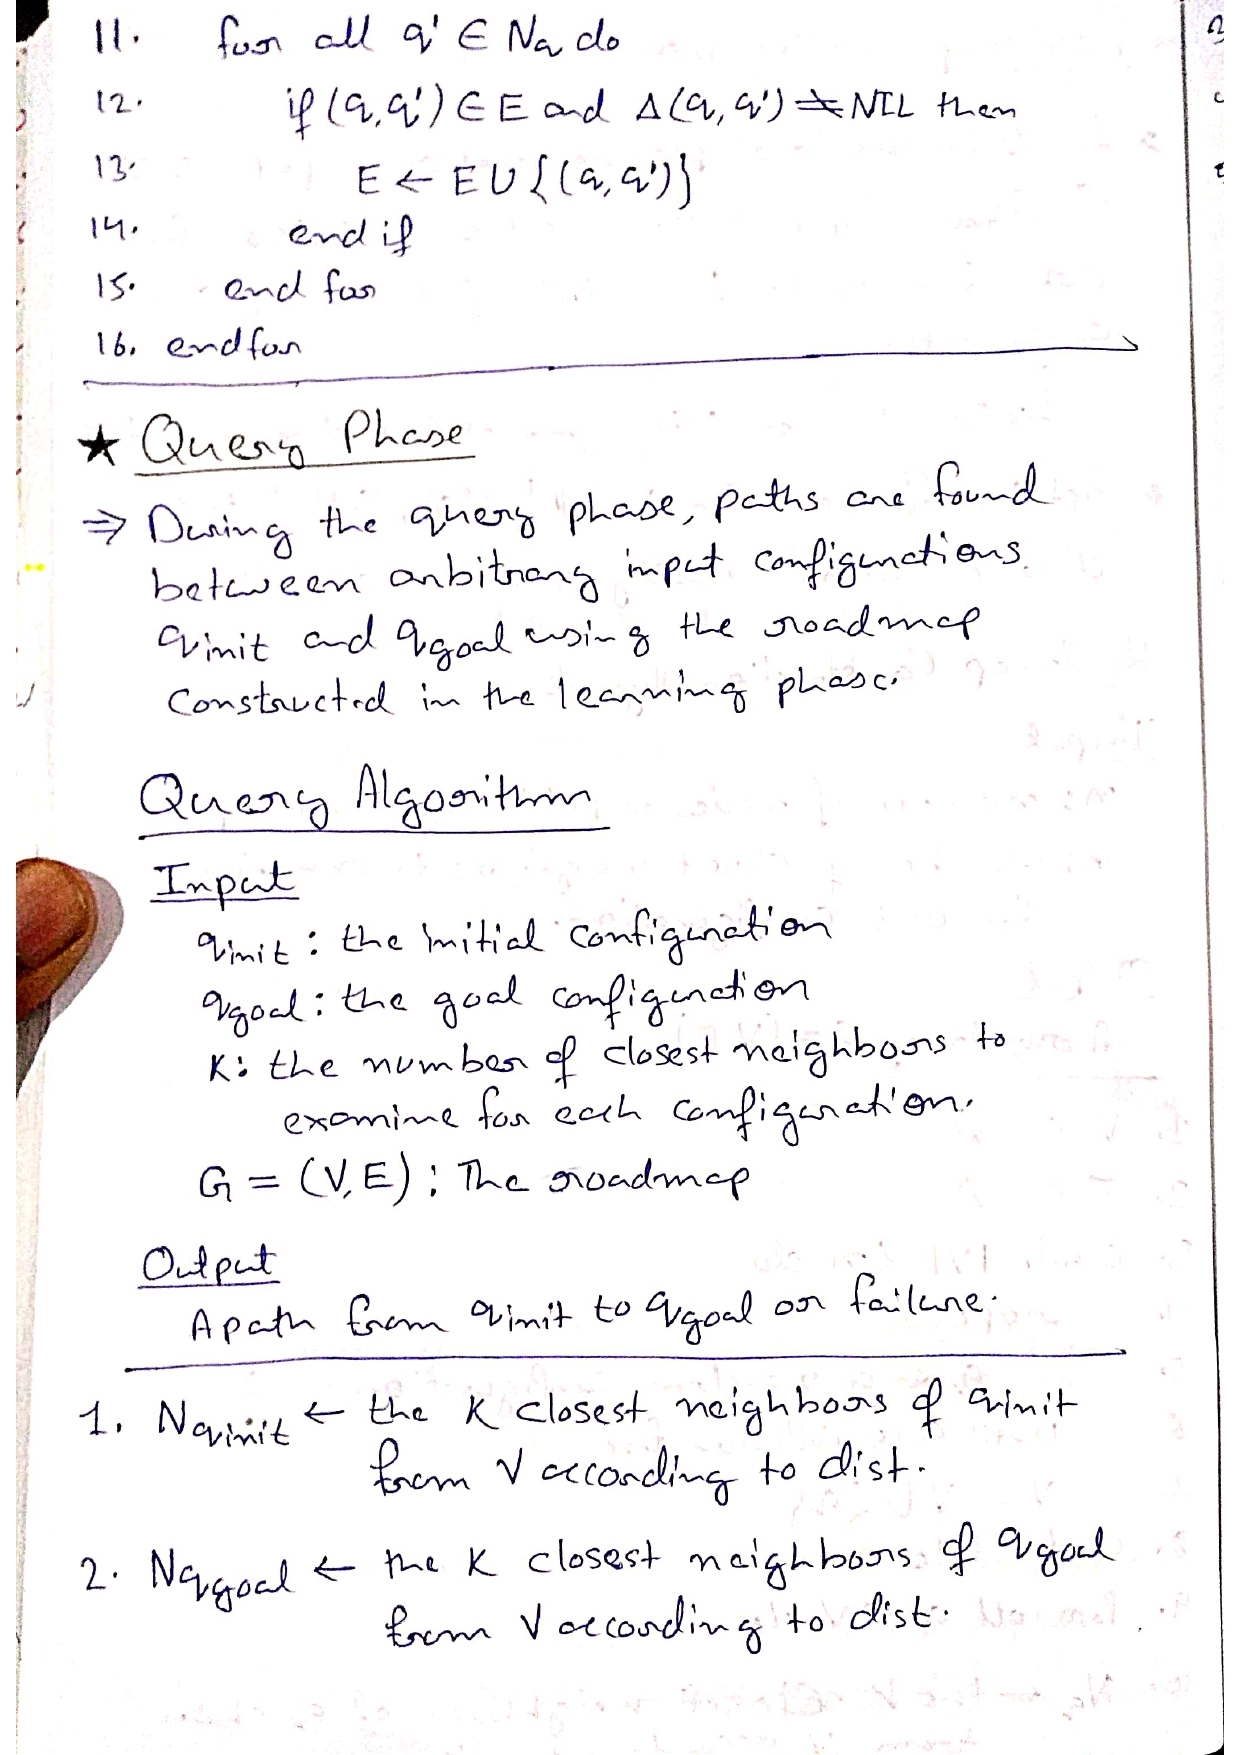 11. for all q' ∈ Nq do
12. if (q, q') ∈ E and Δ(q, q') ≠ NIL then
13. E ← E ∪ {(q, q')}
14. end if
15. end for
16. endfor
★ Query Phase
⇒ During the query phase, paths are found
between arbitrary input configurations
qinit and qgoal using the roadmap
constructed in the learning phase.
Query Algorithm
Input
qinit : the initial configuration
qgoal : the goal configuration
K : the number of closest neighbors to
examine for each configuration.
G = (V, E) ; The roadmap
Output
A path from qinit to qgoal or failure.
1. Nqinit ← the K closest neighbors of qinit
from V according to dist.
2. Nqgoal ← the K closest neighbors of qgoal
from V according to dist.